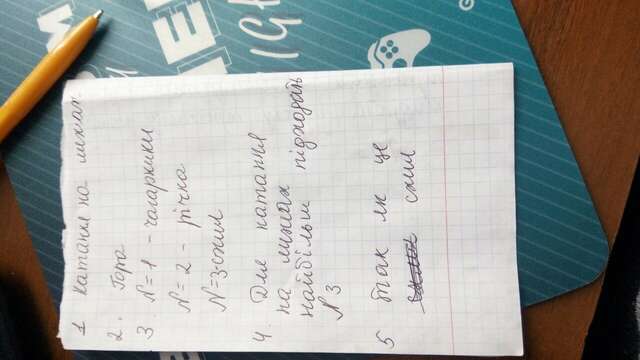 1 Катання на лижах.
2. Гора
3. N=1 - чагарники
N=2 - річка
N=3-схил
4. Для катання
на лижах
найбільш підходять
N 3
5 так як це
схил